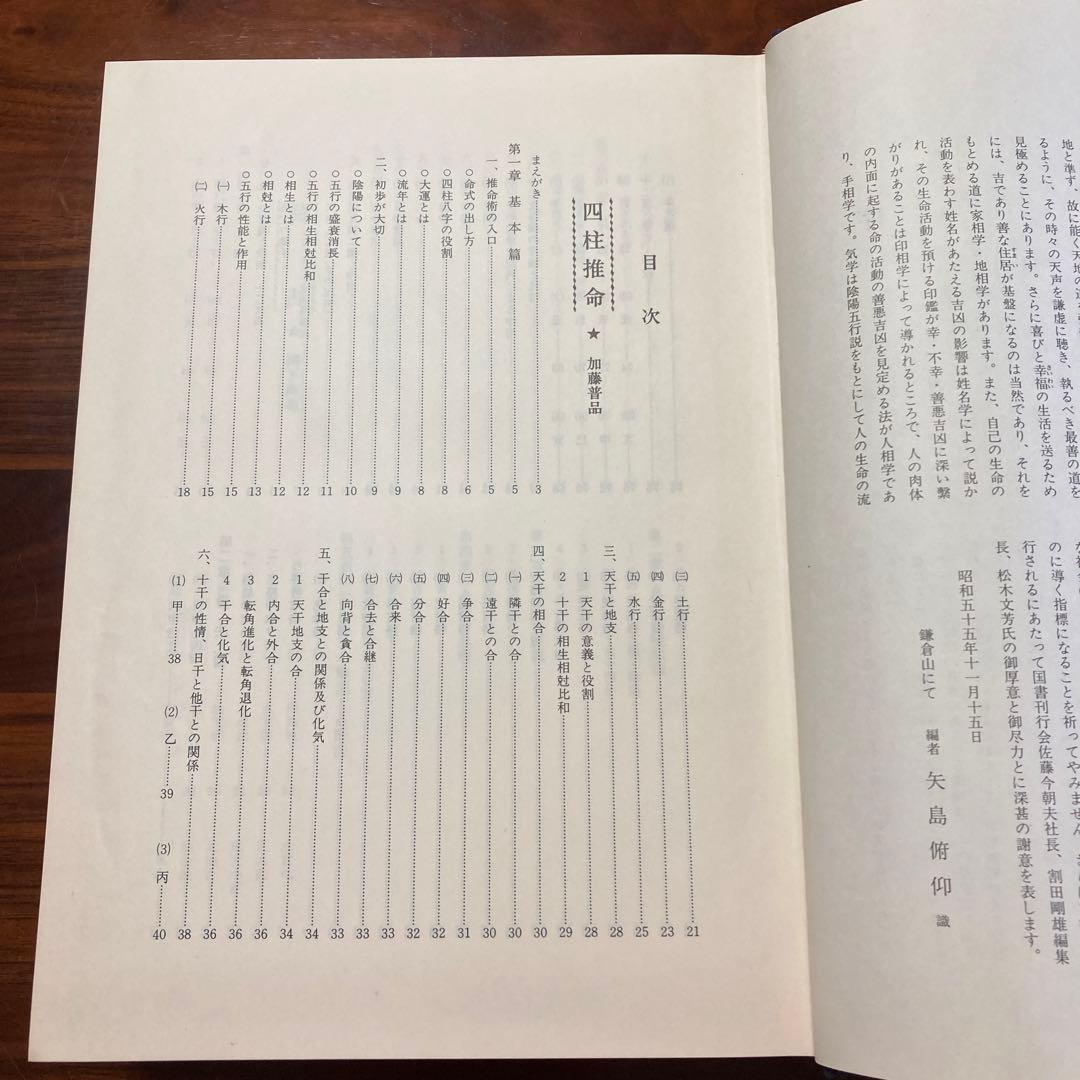 地と準ず、故に能く天地の
るように、その時々の天声を謙虚に聴き、執るべき最善の道を
見極めることにあります。さらに喜びと幸福の生活を送るため
には、吉であり善な住居が基盤になるのは当然であり、それを
もとめる道に家相学・地相学があります。また、自己の生命の
活動を表わす姓名があたえる吉凶の影響は姓名学によって説か
れ、その生命活動を預ける印鑑が幸・不幸・善悪吉凶に深い繋
がりがあることは印相学によって導かれるところで、人の肉体
の内面に起する命の活動の善悪吉凶を見定める法が人相学であ
り、手相学です。気学は陰陽五行説をもとにして人の生命の流
のに導く指標になることを祈ってやみません。
行されるにあたって国書刊行会佐藤今朝夫社長、割田剛雄編集
長、松木文芳氏の御厚意と御尽力とに深甚の謝意を表します。
昭和五十五年十一月十五日
鎌倉山にて 編者 矢島俯仰 識
目次
四柱推命 ★ 加藤普品
まえがき 3
第一章 基本篇 5
一、推命術の入口 5
○命式の出し方 6
○四柱八字の役割 8
○大運とは 8
○流年とは 9
二、初歩が大切 9
○陰陽について 10
○五行の盛衰消長 11
○五行の相生相尅比和 12
○相生とは 12
○相尅とは 13
○五行の性能と作用 15
㈠ 木行 15
㈡ 火行 18
㈢ 土行 21
㈣ 金行 23
㈤ 水行 25
三、天干と地支 28
1 天干の意義と役割 28
2 十干の相生相尅比和 29
四、天干の相合 30
㈠ 隣干との合 30
㈡ 遠干との合 30
㈢ 争合 31
㈣ 好合 32
㈤ 分合 32
㈥ 合来 33
㈦ 合去と合継 33
㈧ 向背と貪合 33
五、干合と地支との関係及び化気 34
1 天干地支の合 34
2 内合と外合 36
3 転角進化と転角退化 36
4 干合と化気 36
六、十干の性情、日干と他干との関係 38
⑴ 甲 38 ⑵ 乙 39 ⑶ 丙 40